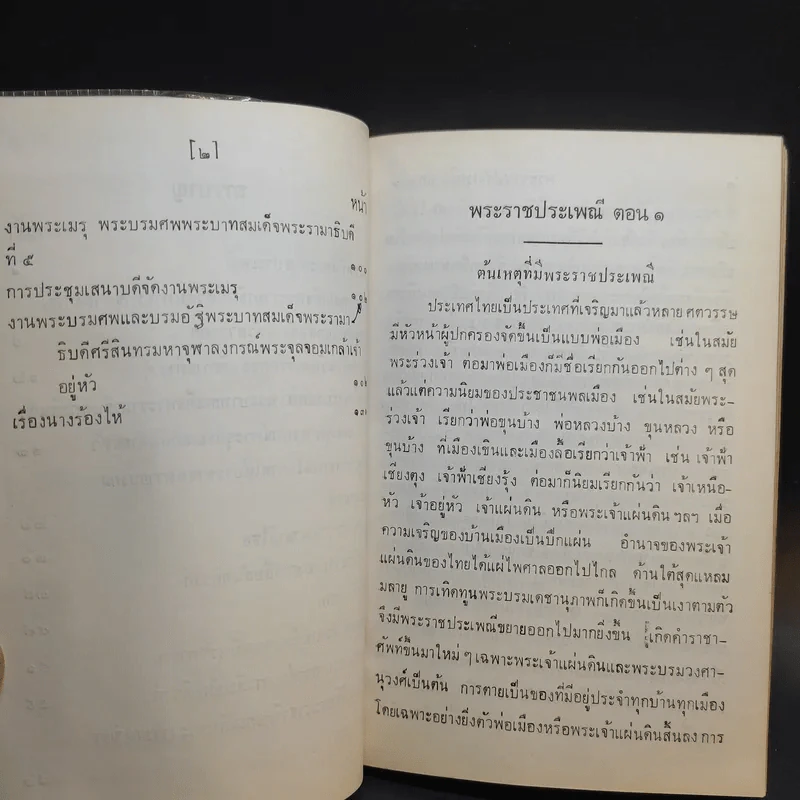 [๒]
หน้า
งานพระเมรุ พระบรมศพพระบาทสมเด็จพระรามาธิบดี
ที่ ๕ ๑๐๐
การประชุมเสนาบดีจัดงานพระเมรุ ๑๐๒
งานพระบรมศพและบรมอัฐิพระบาทสมเด็จพระรามา
ธิบดีศรีสินทรมหาจุฬาลงกรณ์พระจุลจอมเกล้าเจ้า
อยู่หัว
เรื่องนางร้องไห้
พระราชประเพณี ตอน ๑
ต้นเหตุที่มีพระราชประเพณี
ประเทศไทยเป็นประเทศที่เจริญมาแล้วหลาย ศตวรรษ
มีหัวหน้าผู้ปกครองจัดขึ้นเป็นแบบพ่อเมือง เช่นในสมัย
พระร่วงเจ้า ต่อมาพ่อเมืองก็มีชื่อเรียกกันออกไปต่าง ๆ สุด
แล้วแต่ความนิยมของประชาชนพลเมือง เช่นในสมัยพระ-
ร่วงเจ้า เรียกว่าพ่อขุนบ้าง พ่อหลวงบ้าง ขุนหลวง หรือ
ขุนบ้าง ที่เมืองเขินและเมืองลื้อเรียกว่าเจ้าฟ้า เช่น เจ้าฟ้า
เชียงตุง เจ้าฟ้าเชียงรุ้ง ต่อมาก็นิยมเรียกกันว่า เจ้าเหนือ-
หัว เจ้าอยู่หัว เจ้าแผ่นดิน หรือพระเจ้าแผ่นดิน ฯลฯ เมื่อ
ความเจริญของบ้านเมืองเป็นปึกแผ่น อำนาจของพระเจ้า
แผ่นดินของไทยได้แผ่ไพศาลออกไปไกล ด้านใต้สุดแหลม
มลายู การเทิดทูนพระบรมเดชานุภาพก็เกิดขึ้นเป็นเงาตามตัว
จึงมีพระราชประเพณีขยายออกไปมากยิ่งขึ้น เกิดคำราชา-
ศัพท์ขึ้นมาใหม่ ๆ เฉพาะพระเจ้าแผ่นดินและพระบรมวงศา-
นุวงศ์เป็นต้น การตายเป็นของที่มีอยู่ประจำทุกบ้านทุกเมือง
โดยเฉพาะอย่างยิ่งตัวพ่อเมืองหรือพระเจ้าแผ่นดินสิ้นลง การ